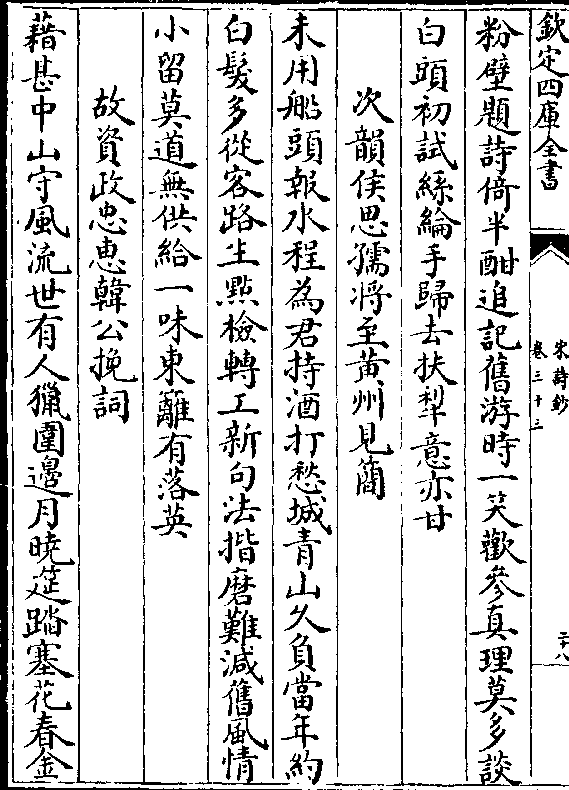 欽定四庫全書
宋詩鈔
卷三十三
二十八
粉壁題詩倚半酣追記舊游時一笑歡參真理莫多談
白頭初試絲綸手歸去扶犁意亦甘
次韻侯思孺将至黄州見簡
未用船頭報水程為君持酒打愁城青山久負當年約
白髮多從客路生點檢轉工新句法揩磨難減舊風情
小留莫道無供給一味東籬有落英
故資政忠惠韓公挽詞
藉甚中山守風流世有人獵圍邊月曉筵踏塞花春金